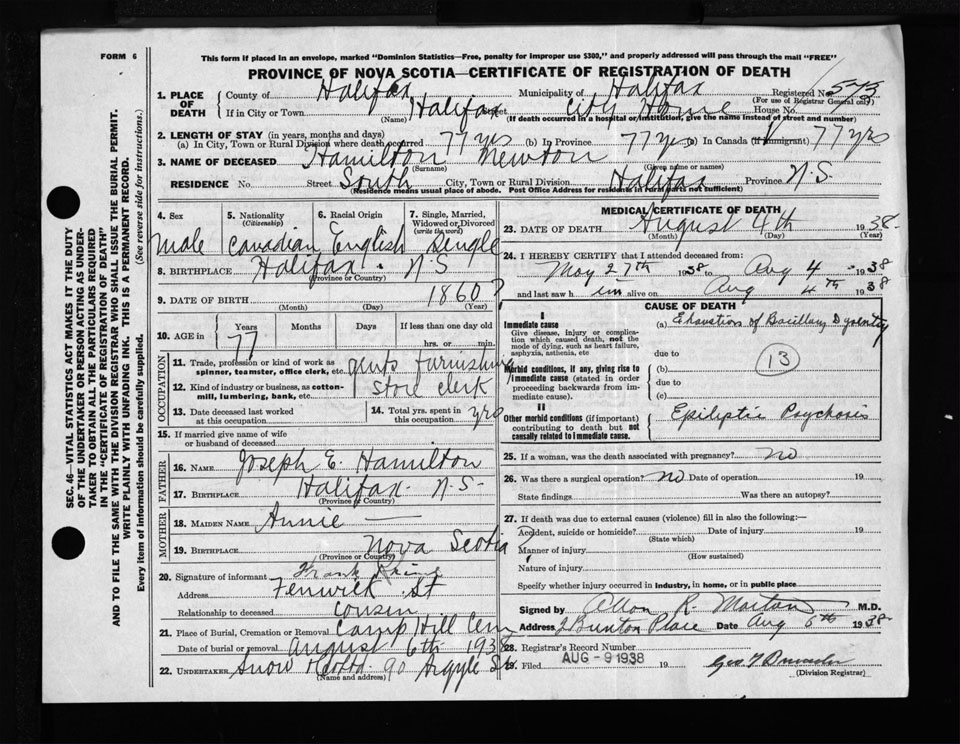 FORM 6
This form if placed in an envelope, marked "Dominion Statistics—Free, penalty for improper use $300," and properly addressed will pass through the mail "FREE"
PROVINCE OF NOVA SCOTIA—CERTIFICATE OF REGISTRATION OF DEATH
SEC. 46—VITAL STATISTICS ACT MAKES IT THE DUTY
OF THE UNDERTAKER OR PERSON ACTING AS UNDER-
TAKER TO OBTAIN ALL THE PARTICULARS REQUIRED
IN THE "CERTIFICATE OF REGISTRATION OF DEATH"
AND TO FILE THE SAME WITH THE DIVISION REGISTRAR WHO SHALL ISSUE THE BURIAL PERMIT.
WRITE PLAINLY WITH UNFADING INK. THIS IS A PERMANENT RECORD.
Every item of information should be carefully supplied. (See reverse side for instructions.)
1. PLACE OF DEATH
County of Halifax Municipality of Halifax Registered No 573
(For use of Registrar General only)
If in City or Town Halifax Street City Home House No.
(Name) (If death occurred in a hospital or institution, give the name instead of street and number)
2. LENGTH OF STAY (in years, months and days)
(a) In City, Town or Rural Division where death occurred 77 yrs (b) In Province 77 yrs (c) In Canada (if Immigrant) 77 yrs
3. NAME OF DECEASED Hamilton Newton
(Surname) (Given name or names)
RESIDENCE No Street South City, Town or Rural Division Halifax Province N.S.
(Residence means usual place of abode. Post Office Address for residents in rural parts not sufficient)
4. Sex 5. Nationality (Citizenship) 6. Racial Origin 7. Single, Married, Widowed or Divorced (write the word)
Male Canadian English Single
8. BIRTHPLACE Halifax N S
(Province or Country)
9. DATE OF BIRTH 1860?
(Month) (Day) (Year)
10. AGE in Years Months Days If less than one day old
77 hrs. or min.
OCCUPATION
11. Trade, profession or kind of work as spinner, teamster, office clerk, etc. gents furnishing
12. Kind of industry or business, as cotton-mill, lumbering, bank, etc. store clerk
13. Date deceased last worked at this occupation 14. Total yrs. spent in this occupation yrs
15. If married give name of wife or husband of deceased
FATHER
16. NAME Joseph E. Hamilton
17. BIRTHPLACE Halifax - N.S-
(Province or Country)
MOTHER
18. MAIDEN NAME Annie —
19. BIRTHPLACE Nova Scotia
(Province or Country)
20. Signature of informant Frank
Address Fenwick St
Relationship to deceased cousin
21. Place of Burial, Cremation or Removal Camp Hill Cem
Date of burial or removal August 6th 1938
22. UNDERTAKER Snow 90 Argyle St
(Name and address)
MEDICAL CERTIFICATE OF DEATH
23. DATE OF DEATH August 4th 1938
(Month) (Day) (Year)
24. I HEREBY CERTIFY that I attended deceased from:
May 27th 1938 to Aug 4 1938
and last saw him alive on Aug 4th 1938
CAUSE OF DEATH
I
Immediate cause (a) Exhaustion of Bacillary Dysentry
Give disease, injury or complication which caused death, not the mode of dying, such as heart failure, asphyxia, asthenia, etc
due to
13
Morbid conditions, if any, giving rise to immediate cause (stated in order proceeding backwards from immediate cause).
(b)
due to
(c)
II
Other morbid conditions (if important) contributing to death but not causally related to Immediate cause.
Epileptic Psychosis
25. If a woman, was the death associated with pregnancy? No
26. Was there a surgical operation? No Date of operation 19
State findings Was there an autopsy?
27. If death was due to external causes (violence) fill in also the following:—
Accident, suicide or homicide? Date of injury 19
(State which)
Manner of injury
(How sustained)
Nature of injury
Specify whether injury occurred in industry, in home, or in public place
Signed by Allan R. Morton M.D.
Address Place Date Aug 6th 1938
28. Registrar's Record Number
29. Filed AUG - 9 1938 19
(Division Registrar)